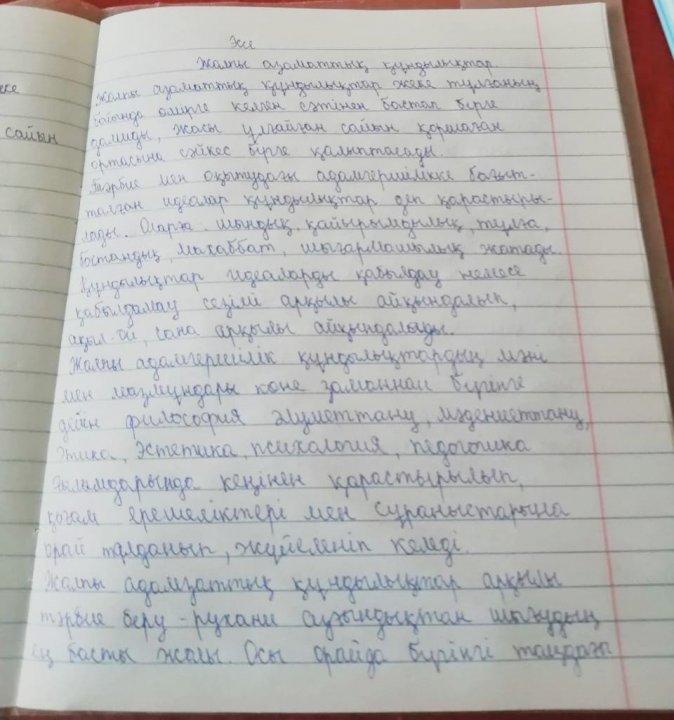 Эссе
Жалпы азаматтық құндылықтар.
Жалпы азаматтық құндылықтар жеке тұлғаның
бойында өмірге келген сәтінен бастап бірге
дамиды, жасы ұлғайған сайын қоршаған
ортасына сәйкес бірге қалыптасады.
Тәрбие мен оқытудағы адамгершілікке бағыт-
талған идеалар құндылықтар деп қарастыры-
лады. Оларға шындық, қайырымдылық, тұлға,
бостандық, махаббат, шығармашылық жатады.
Құндылықтар идеаларды қабылдау немесе
қабылдамау сезімі арқылы айқындалып,
ақыл-ой, сана арқылы айқындалады.
Жалпы адамгершілік құндылықтардың мәні
мен мазмұндары көне заманнан бүгінге
дейін философия әлуметтану, мәдениеттану,
этика, эстетика, психология, педогогика
ғылымдарында кеңінен қарастырылып,
қоғам ерешеліктері мен сұраныстарына
орай талданып, жүйеленіп келеді.
Жалпы адамзаттық құндылықтар арқылы
тәрбие беру - рухани азғындықтан шығудың
ең басты жолы. Осы орайда бүгінгі таңдағы
еке
сайын